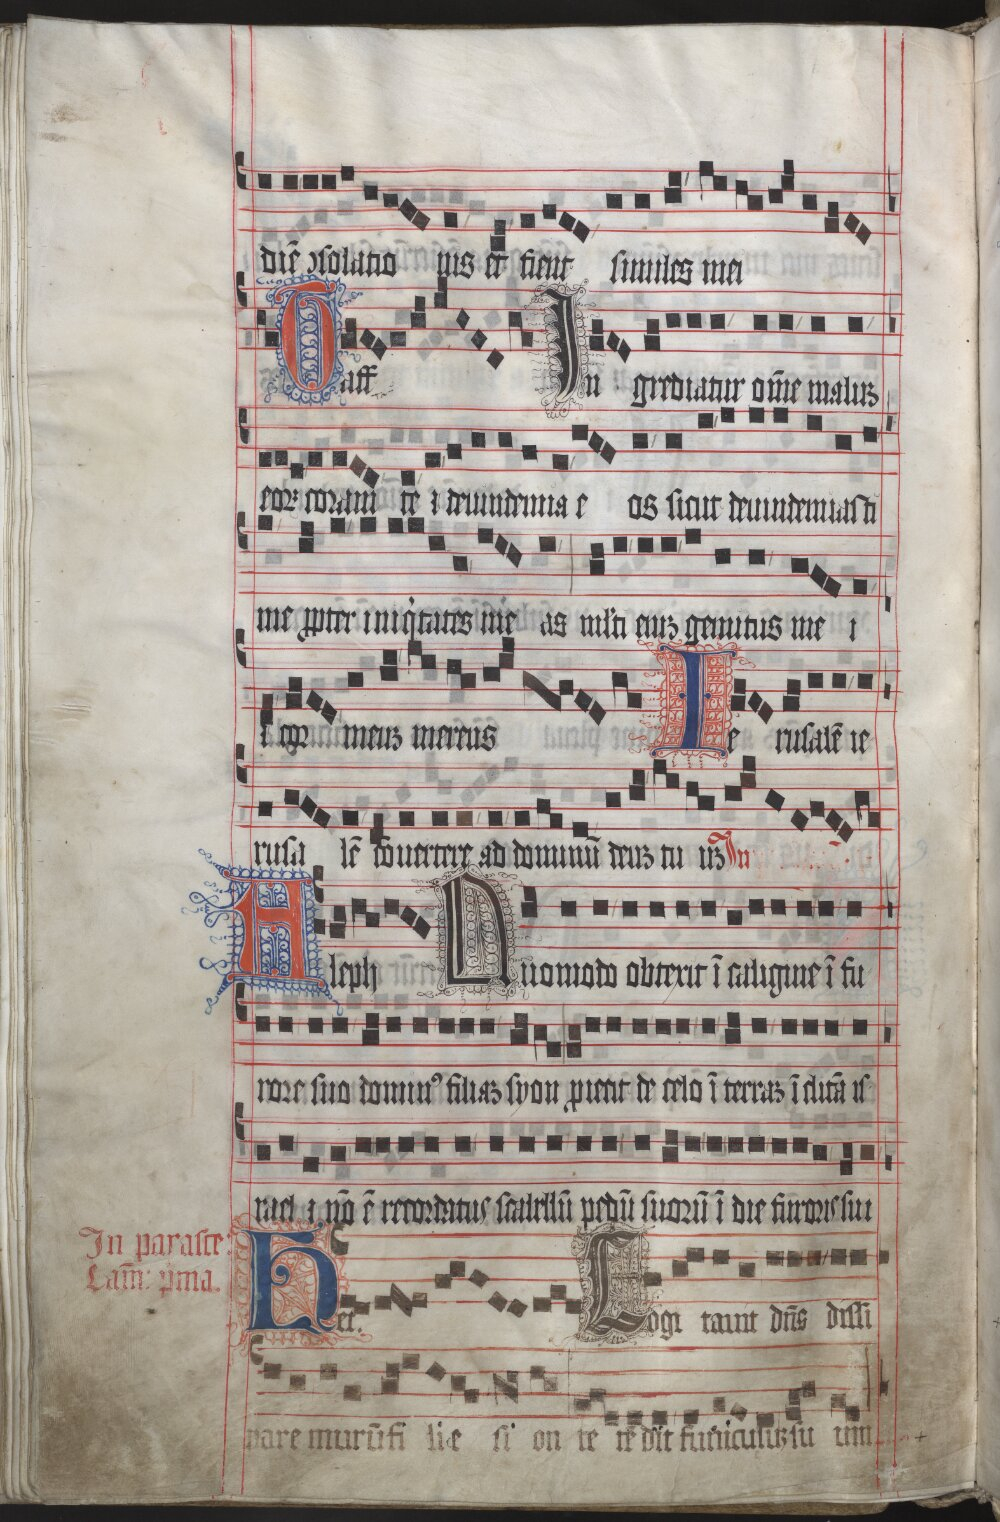 diē ɔsolatio nis et fient similes mei
Taff In grediatur om̄e maluȝ
eoꝝ coram te ⁊ deuindemia e os sicut deuindemiasti
me ꝓpter iniq̇tates me as ml̄ti eniȝ gemitus me i
⁊ cor meuȝ merens Ie rusalē ie
rusa lē cōuertere ad dominū deuȝ tu uȝ In
Aleph Quomodo obtexit ī caligine ī fu
rore suo dominꝰ filiaȝ syon ꝓiecit de celo ī terraȝ īclitā is
rael ⁊ nō ē recordatus scabellū pedū suorū ī die furoris sui
In parasce:
Lam̄: pͥma.
Het. Cogi tauit dn̄s dissi
pare murū fi li e si on te tēdit funiculuȝ su um